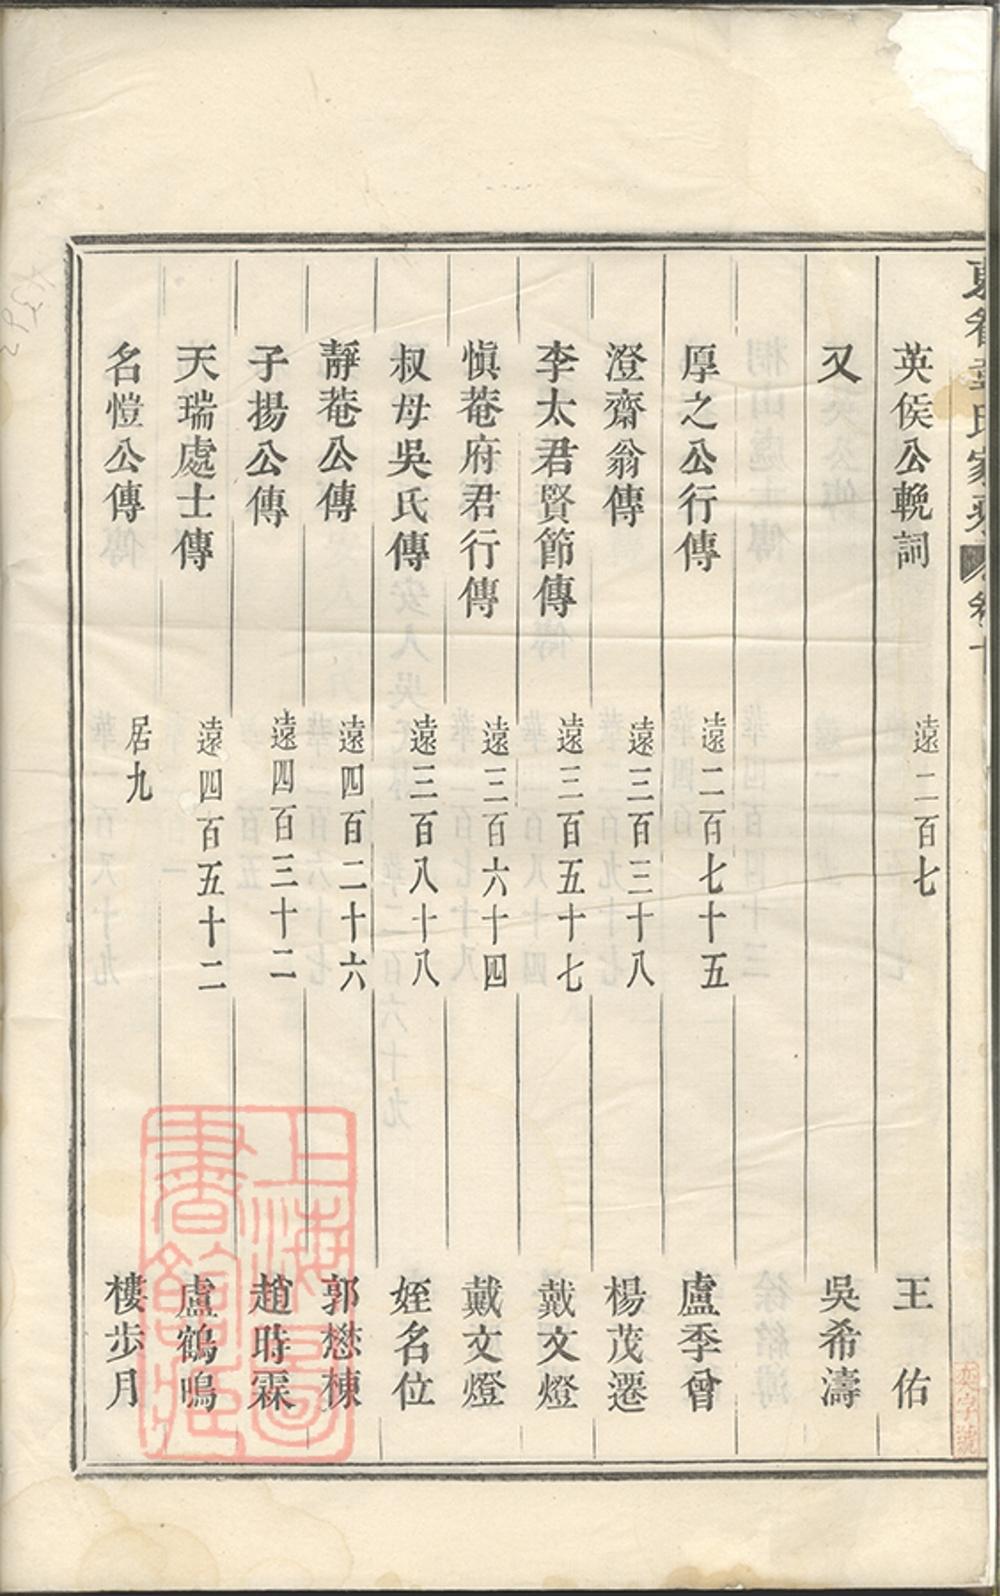 英侯公輓詞 遠二百七 王佑
又 吳希濤
厚之公行傳 遠二百七十五 盧季曾
澄齋翁傳 遠三百三十八 楊茂遷
李太君賢節傳 遠三百五十七 戴文燈
慎菴府君行傳 遠三百六十四 戴文燈
叔母吳氏傳 遠三百八十八 姪名位
靜菴公傳 遠四百二十六 郭懋棟
子揚公傳 遠四百三十二 趙時霖
天瑞處士傳 遠四百五十二 盧鶴鳴
名愷公傳 居九 樓步月
上海圖書館藏